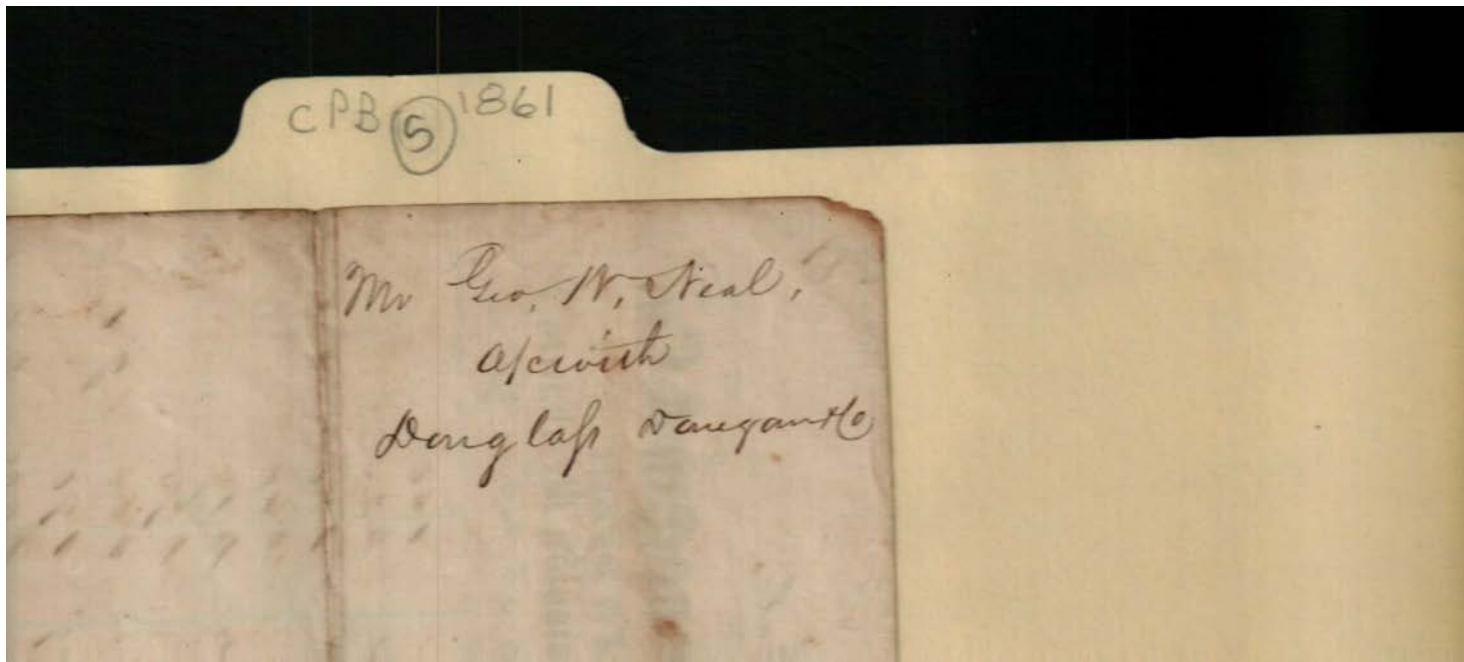 CPB 5 1861
Mr Geo. W. Neal,
a/c with
Douglass Donegan & Co